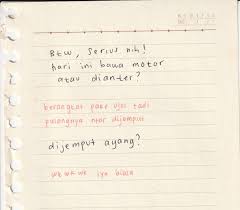 BTW, serius nih!
hari ini bawa motor
atau dianter?
berangkat pake ojol tadi
pulangnya ntar dijemput
dijemput ayang?
wkwkwk iya biasa